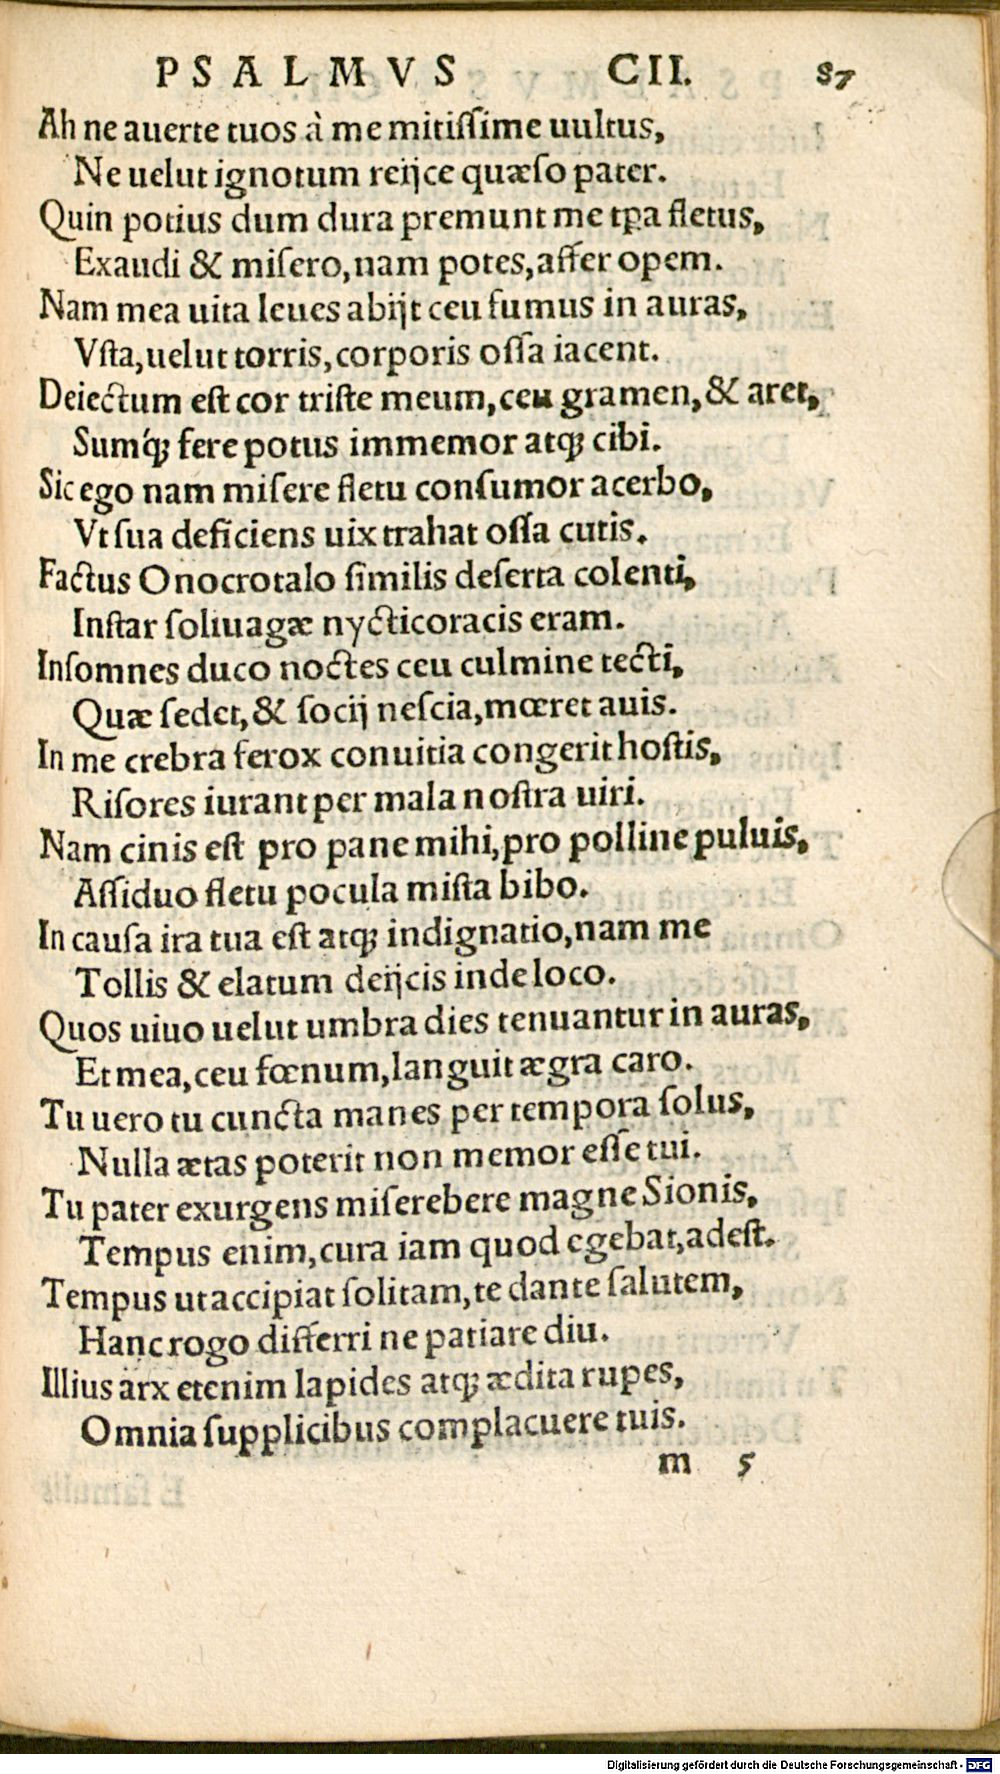 PSALMVS CII. 87
Ah ne auerte tuos à me mitissime uultus,
Ne uelut ignotum reijce quæso pater.
Quin potius dum dura premunt me tpa fletus,
Exaudi & misero, nam potes, affer opem.
Nam mea uita leues abijt ceu fumus in auras,
Vsta, uelut torris, corporis ossa iacent.
Deiectum est cor triste meum, ceu gramen, & aret,
Sumq́; fere potus immemor atq; cibi.
Sic ego nam misere fletu consumor acerbo,
Vt sua deficiens uix trahat ossa cutis.
Factus Onocrotalo similis deserta colenti,
Instar soliuagæ nycticoracis eram.
Insomnes duco noctes ceu culmine tecti,
Quæ sedet, & socij nescia, mœret auis.
In me crebra ferox conuitia congerit hostis,
Risores iurant per mala nostra uiri.
Nam cinis est pro pane mihi, pro polline puluis,
Assiduo fletu pocula mista bibo.
In causa ira tua est atq; indignatio, nam me
Tollis & elatum deijcis inde loco.
Quos uiuo uelut umbra dies tenuantur in auras,
Et mea, ceu fœnum, languit ægra caro.
Tu uero tu cuncta manes per tempora solus,
Nulla ætas poterit non memor esse tui.
Tu pater exurgens miserebere magne Sionis,
Tempus enim, cura iam quod egebat, adest.
Tempus ut accipiat solitam, te dante salutem,
Hanc rogo differri ne patiare diu.
Illius arx etenim lapides atq; ædita rupes,
Omnia supplicibus complacuere tuis.
m 5
Digitalisierung gefördert durch die Deutsche Forschungsgemeinschaft - DFG